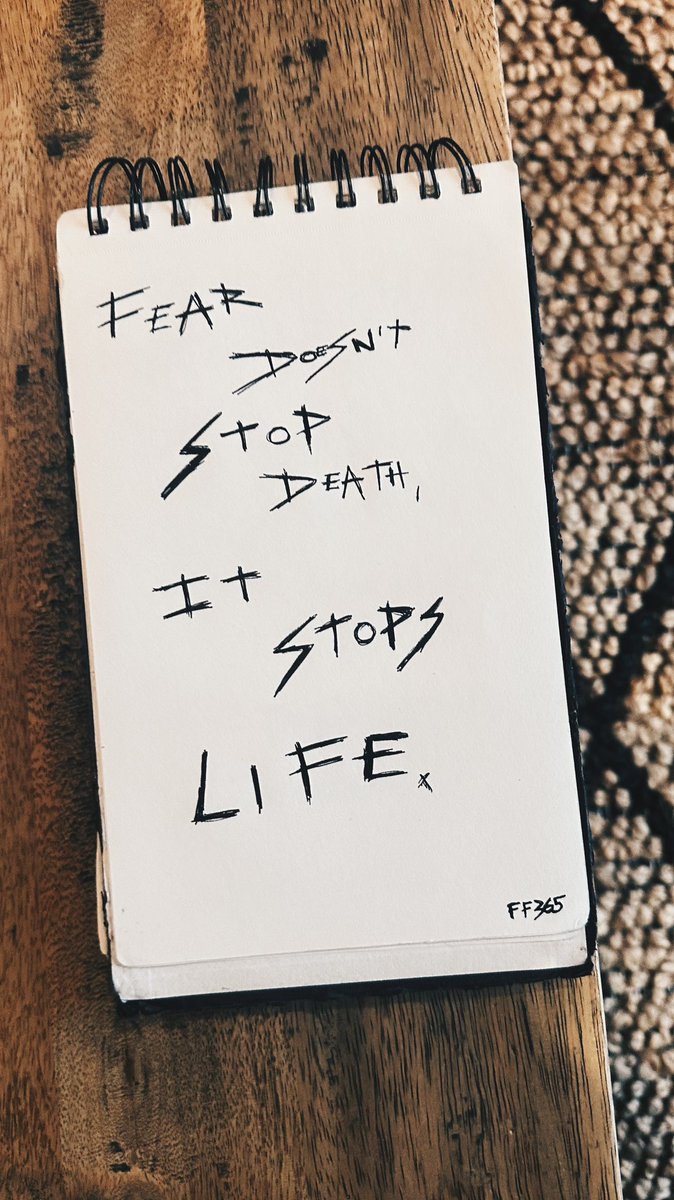 FEAR
DOESN'T
STOP
DEATH,
IT
STOPS
LIFE.x
FF365